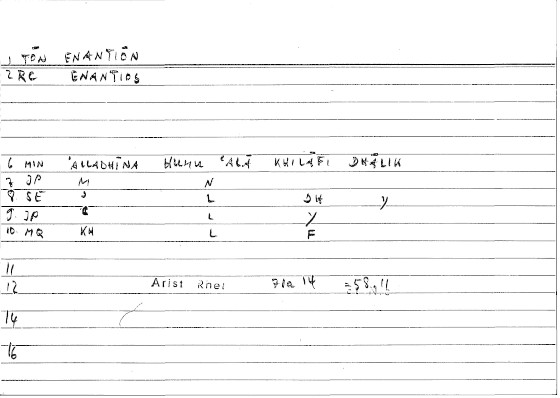 1 TŌN ENANTIŌN
2 RC ENANTIOS
6 MIN ʾALLADHĪNA HUMU ʿALĀ KHILĀFI DHĀLIK
7 JP M N
8 SE L DH Y
9 JP L Y
10 MQ KH L F
11
12 Arist Rhet 78a 14 =58,11
14
16